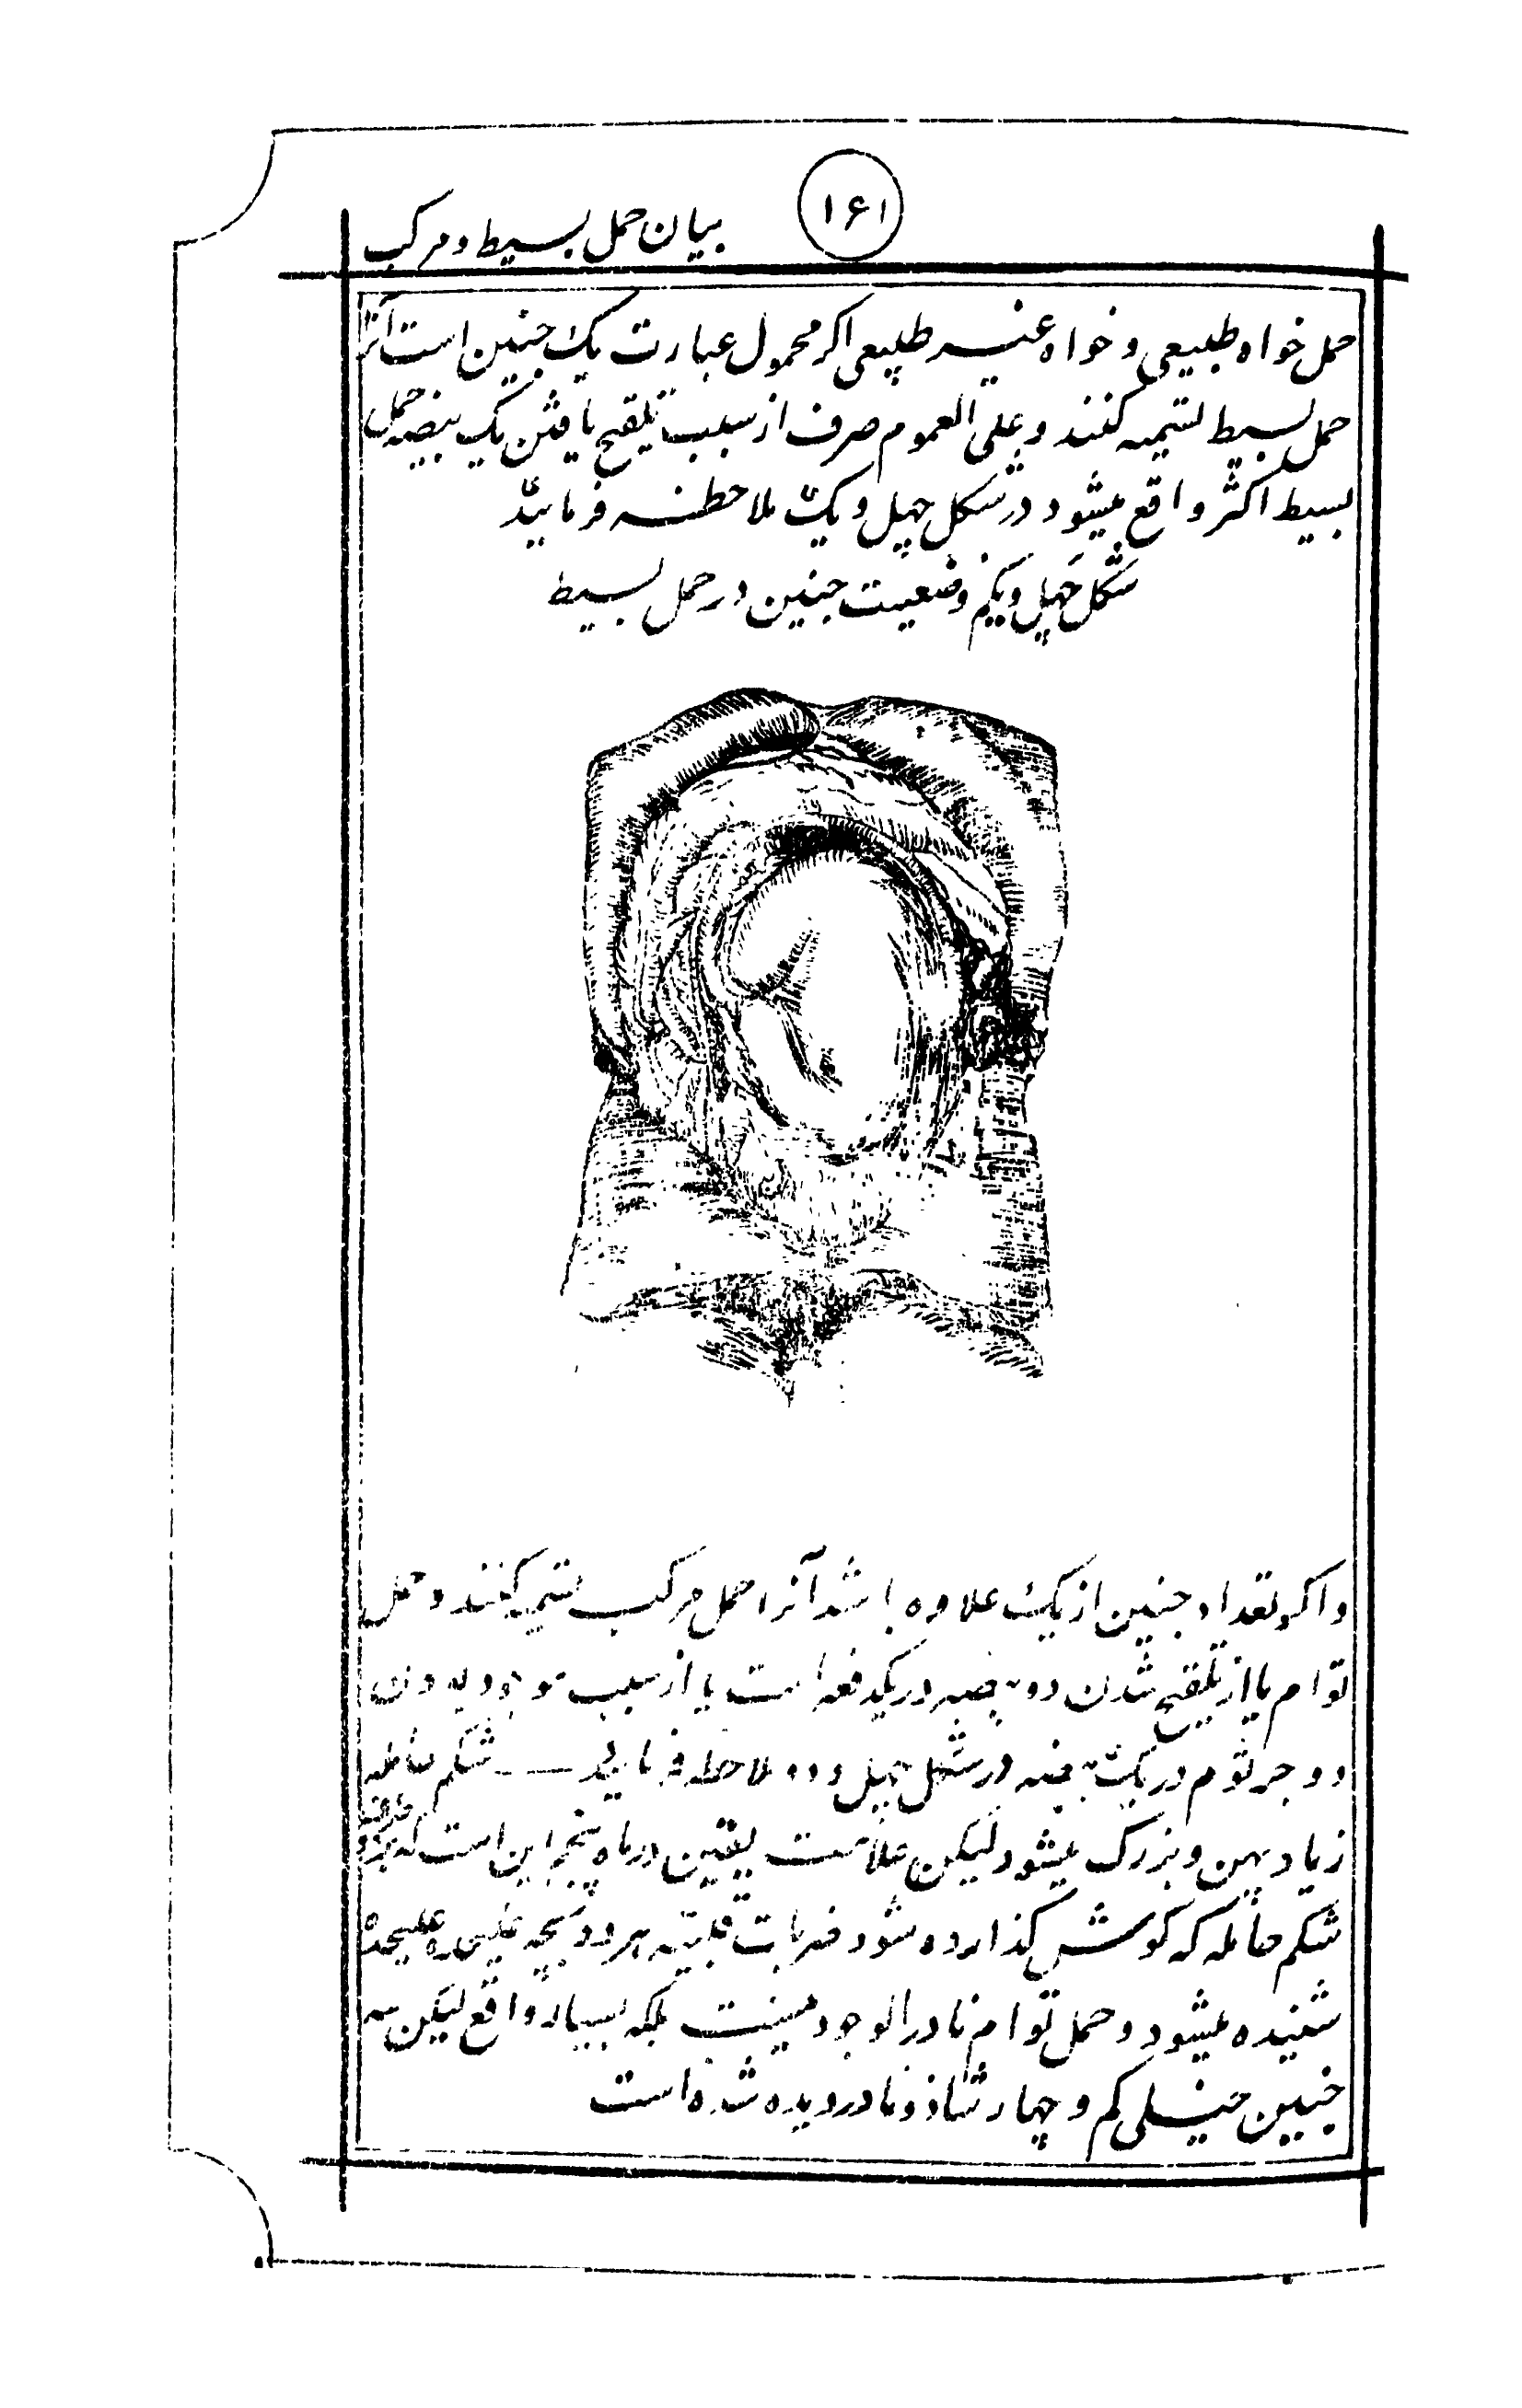 ۱۶۱
بیان حمل بسیط و مرکب
حمل خواه طبیعی و خواه غیر طبیعی اکر محمول عبارت یک جنین است آنرا
حمل بسیط تسمیه کنند و علی العموم صرف از سبب تلقیح یافتن یک بیضه حمل
بسیط اکثر واقع میشود در شکل چهل و یک ملاحظه فرمایید
شکل چهل و یکم وضعیت جنین در حمل بسیط
و اکر تعداد جنین از یک علاوه باشد آنرا حمل مرکب تسمیه کنند و حمل
توام یا از تلقیح شدن دو بیضه در یکدفعه است یا از سبب موجود بودن
دو جرثوم در یک بیضه در شکل چهل و دو ملاحظه فرمایید شکم حامله
زیاد پهن و بزرک میشود لیکن علامت یقین در ماه پنجم این است که بهر دو طرف
شکم حامله که کوش کذارده شود ضربات قلبیه هر دو بچه علیحده علیحده
شنیده میشود و حمل توام نادر الوجود نیست بلکه بسیار واقع لیکن سه
جنین خیلی کم و چهار شاذ و نادر دیده شده است